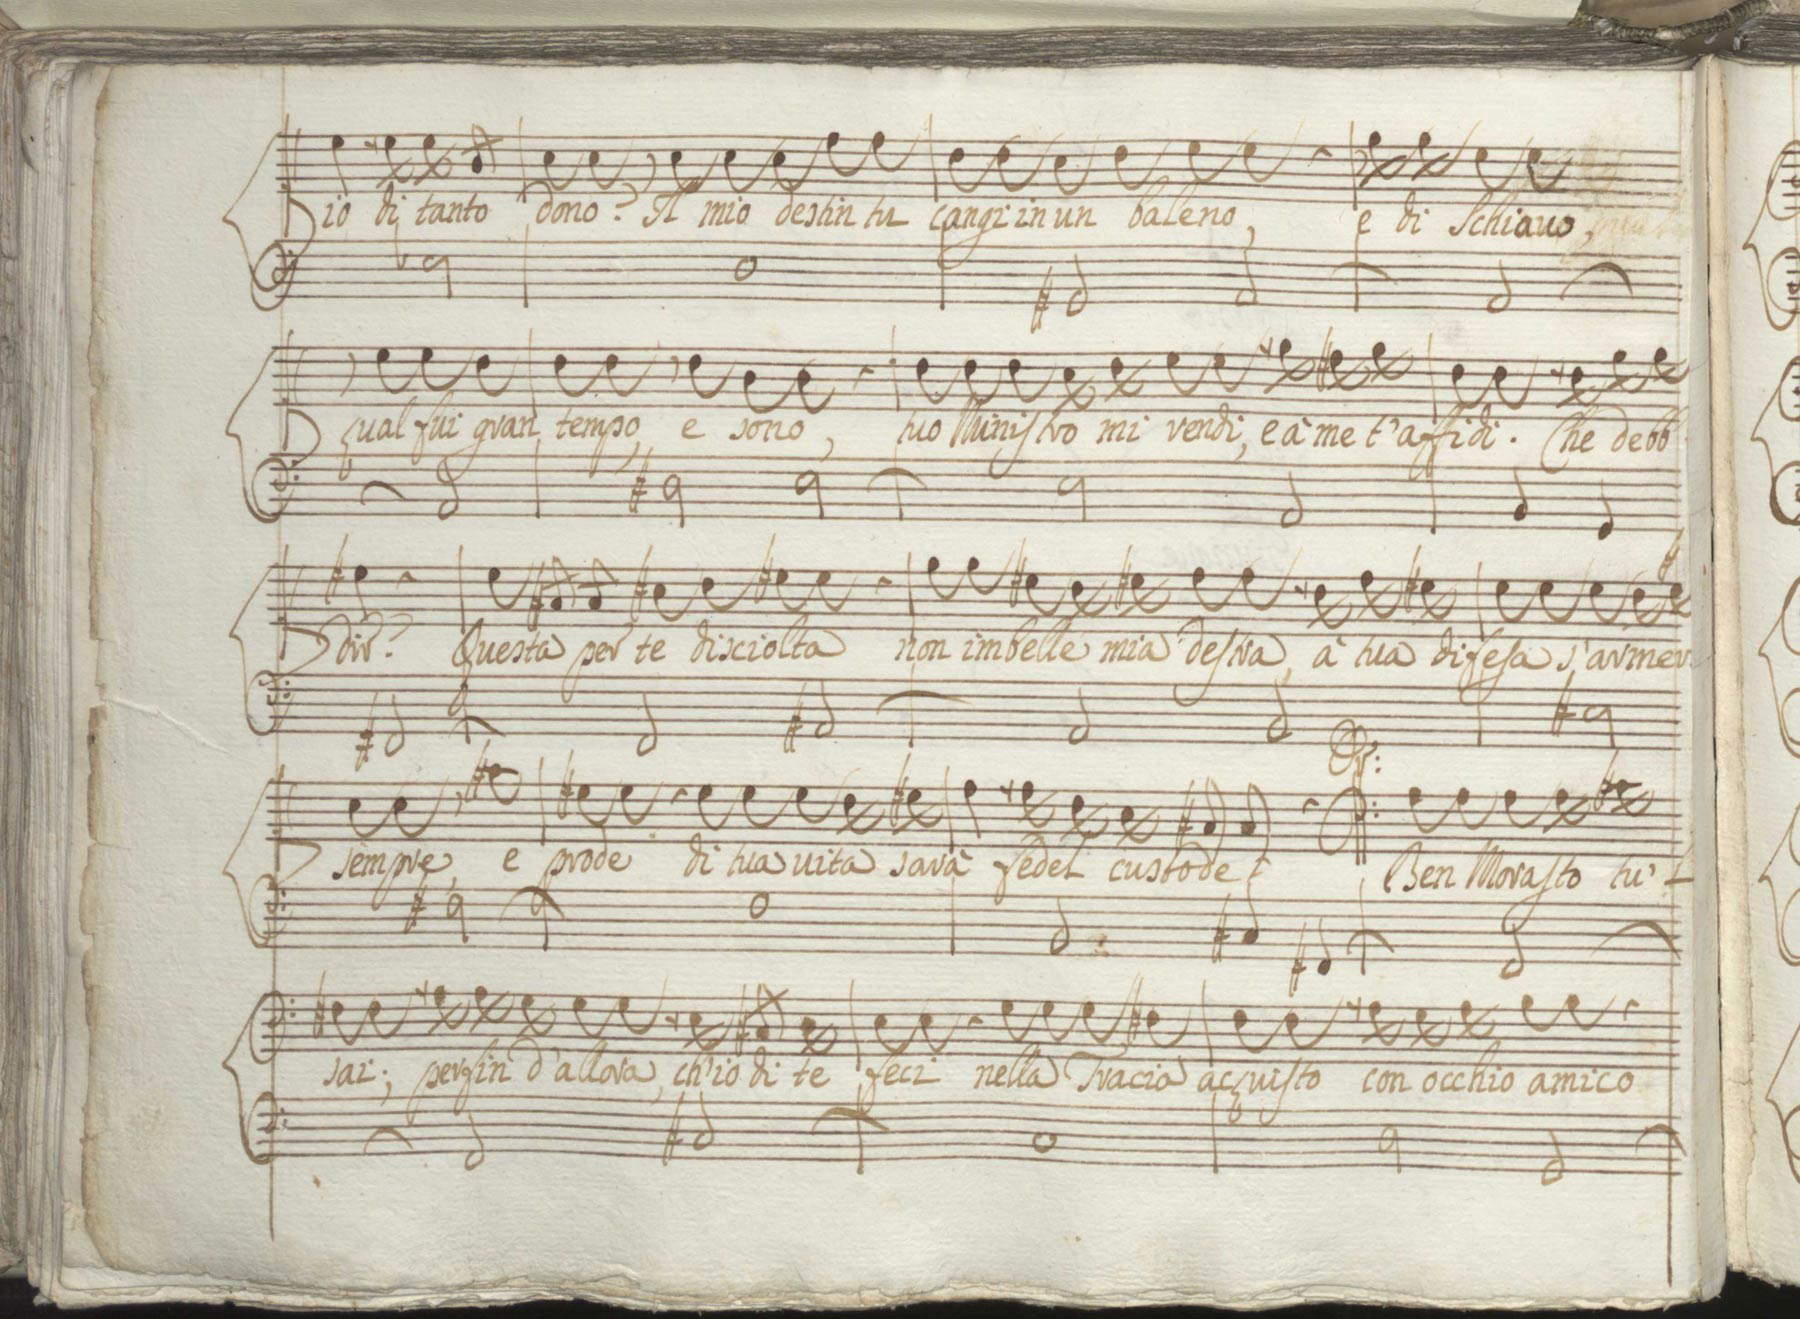 io di tanto dono? Il mio destin tu cangi in un baleno, e di Schiavo,
qual fui gran tempo, e sono, tuo Ministro mi rendi, e à me t'affidi. Che debb
dir? Questa per te disciolta non imbelle mia destra, à tua difesa s'armer
Or:
sempre, e prode di tua vita sarà fedel custode.
Ben Morasto tu'l
sai; perfin d'allora, ch'io di te feci nella Tracia acquisto con occhio amico